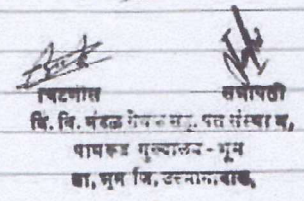 चिटणीस सभापती
वि. वि. मंडळ सेवक सह. पत संस्था म,
पाथरूड मुख्यालय - भूम
ता, भुम जि, उस्मानाबाद,